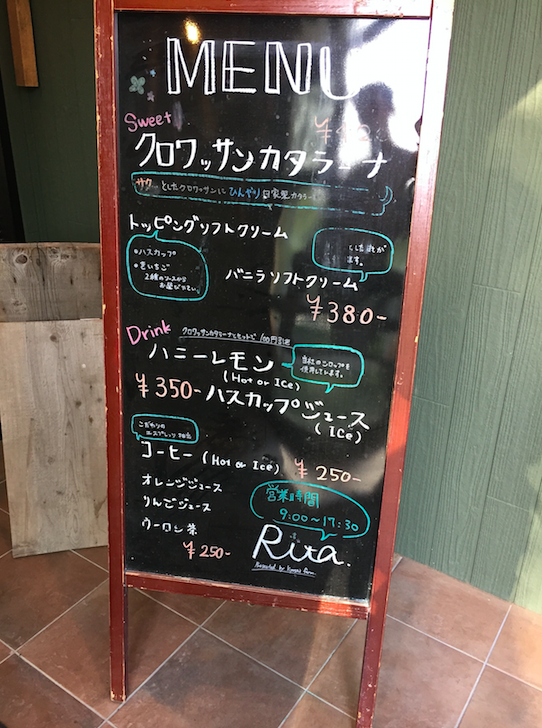 MENU
Sweet
クロワッサンカタラーナ
サクッとしたクロワッサンに ひんやり 自家製カタラーナ
トッピングソフトクリーム
・ハスカップ
・きいちご
2種のソースから
お選び下さい。
バニラソフトクリーム
¥380-
Drink
クロワッサンカタラーナとセットで 100円引き
ハニーレモン
(Hot or Ice)
当社のシロップを
使用しています。
¥350-
ハスカップジュース
(ICe)
こだわりの
エスプレッソ抽出
コーヒー (Hot or Ice)
¥250-
オレンジジュース
りんごジュース
ウーロン茶
¥250-
営業時間
9:00~17:30
Rita.